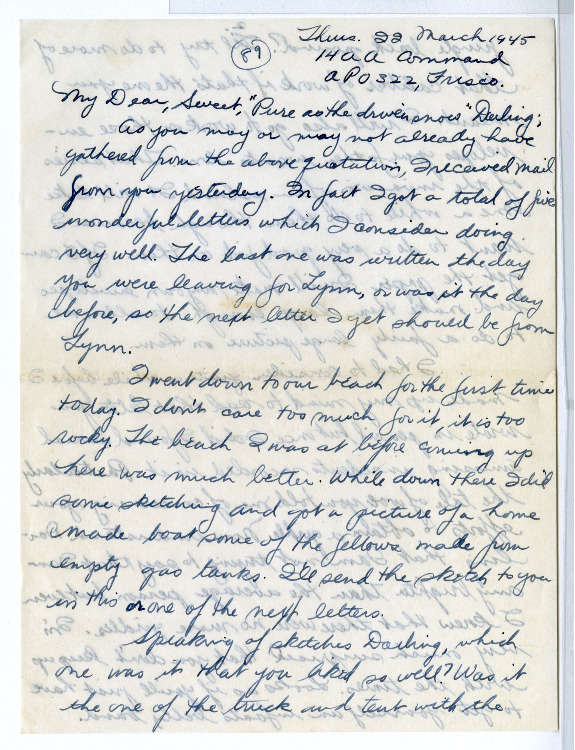 Thurs. 22 March 1945
89
14 AA Command
APO 322, Frisco.
My Dear, Sweet, "Pure as the driven snow" Darling;
As you may or may not already have
gathered from the above quotation, I received mail
from you yesterday. In fact I got a total of five
wonderful letters which I consider doing
very well. The last one was written the day
you were leaving for Lynn, or was it the day
before, so the next letter I get should be from
Lynn.
I went down to our beach for the first time
today. I don't care too much for it, it is too
rocky. The beach I was at before coming up
here was much better. While down there I did
some sketching and got a picture of a home
made boat some of the fellows made from
empty gas tanks. I'll send the sketch to you
in this or one of the next letters.
Speaking of sketches Darling, which
one was it that you liked so well? Was it
the one of the truck and tent with the